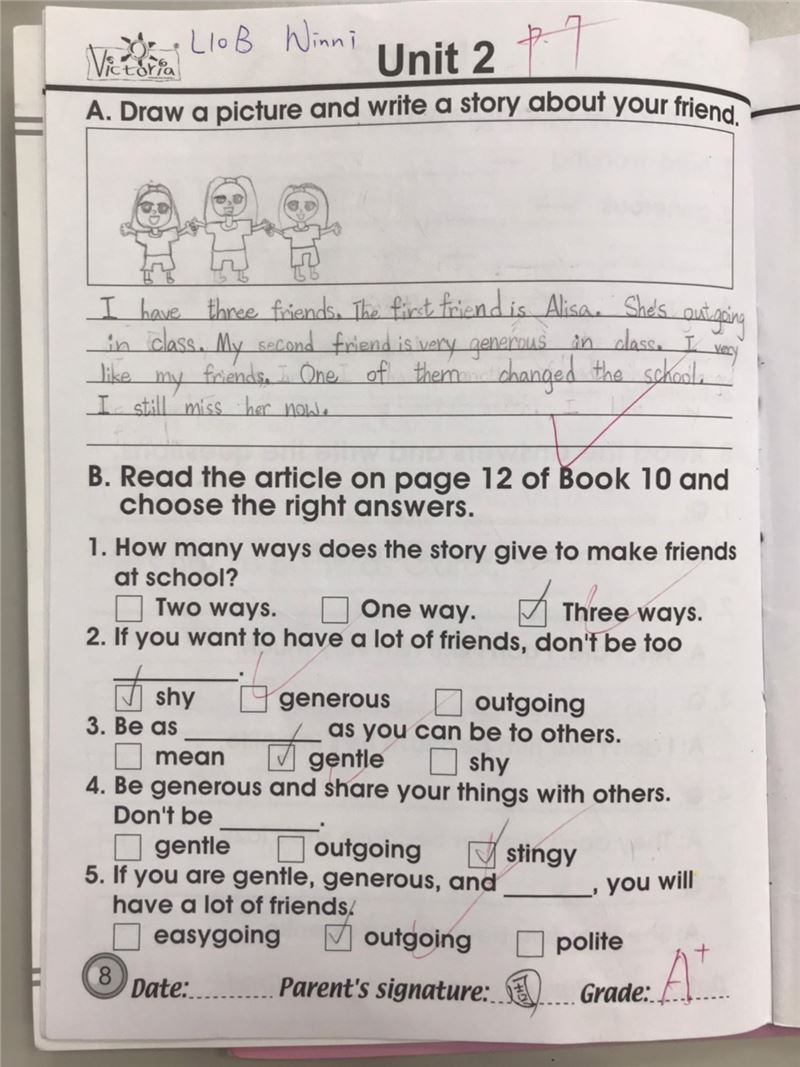 Victoria L10B Winni Unit 2 P.7
A. Draw a picture and write a story about your friend.
I have three friends. The first friend is Alisa. She's outgoing
in class. My second friend is very generous in class. I very
like my friends. One of them changed the school.
I still miss her now.
B. Read the article on page 12 of Book 10 and
choose the right answers.
1. How many ways does the story give to make friends
at school?
Two ways. One way. Three ways.
2. If you want to have a lot of friends, don't be too
.
shy generous outgoing
3. Be as ________ as you can be to others.
mean gentle shy
4. Be generous and share your things with others.
Don't be ________.
gentle outgoing stingy
5. If you are gentle, generous, and ________, you will
have a lot of friends.
easygoing outgoing polite
8 Date:.......... Parent's signature:.......... Grade: A+